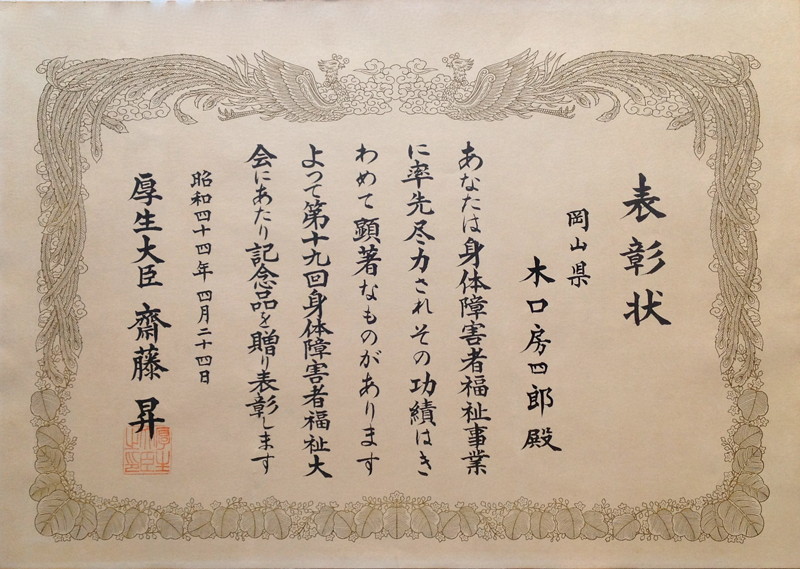 表彰状
岡山県
木口房四郎殿
あなたは身体障害者福祉事業
に率先尽力されその功績はき
わめて顕著なものがあります
よって第十九回身体障害者福祉大
会にあたり記念品を贈り表彰します
昭和四十四年四月二十四日
厚生大臣 齋藤昇